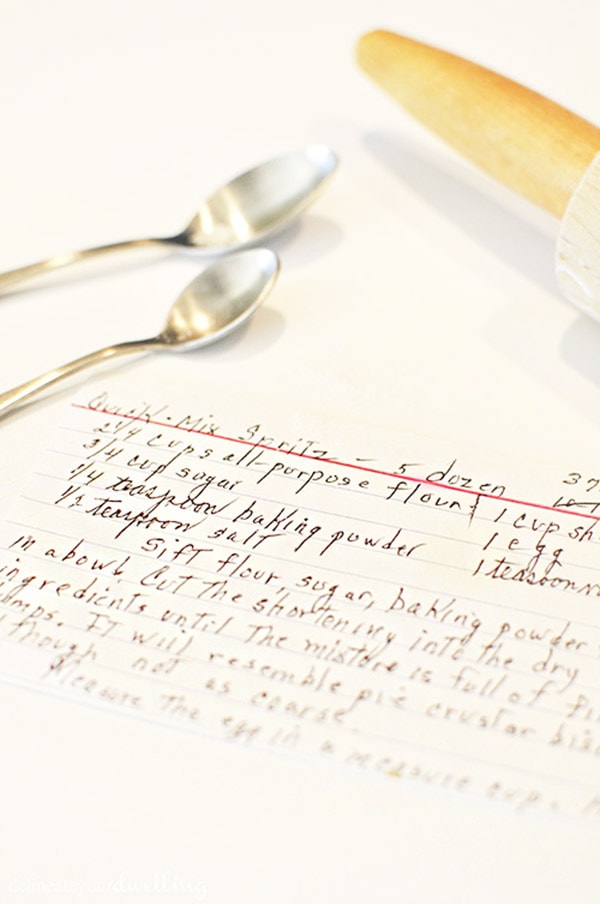 Quick-Mix Spritz - 5 dozen 37
2 1/4 cups all-purpose flour 1 cup sh
3/4 cup sugar 1 egg
1/4 teaspoon baking powder 1 teaspoon
1/2 teaspoon salt
Sift flour, sugar, baking powder
in a bowl. Cut the shortening into the dry
ingredients until the mixture is full of fi
umps. It will resemble pie crust or bisc
though not as coarse.
Measure the egg in a measure cup.
delineateyourdwelling